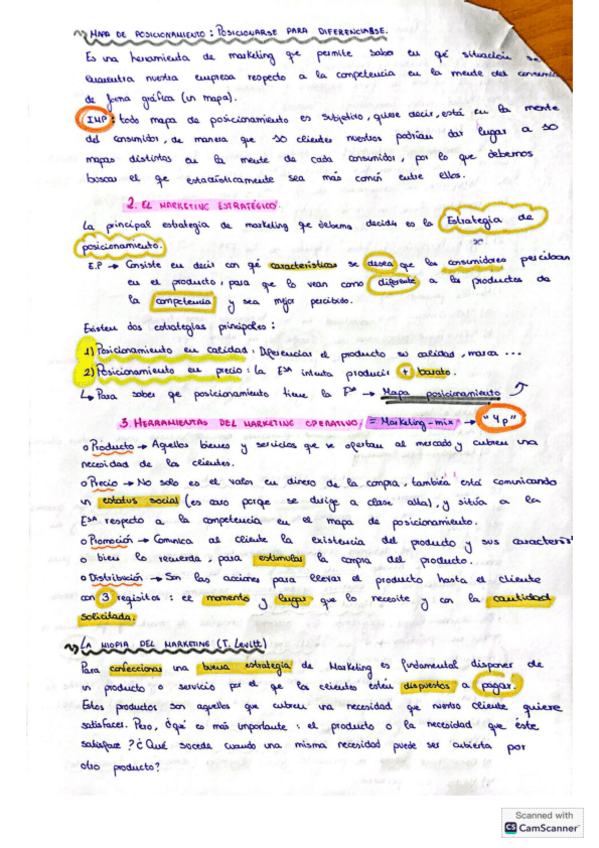 MAPA DE POSICIONAMIENTO: POSICIONARSE PARA DIFERENCIARSE.
Es una herramienta de marketing que permite saber en qé situación se
encuentra nuestra empresa respecto a la competencia en la mente del consumi
de forma gráfica (un mapa).
IMP: todo mapa de posicionamiento es subjetivo, quiere decir, está en la mente
del consumidor, de manera que 10 clientes nuestros podrían dar lugar a 10
mapas distintos en la mente de cada consumidor, por lo que debemos
buscar el qe estadísticamente sea más común entre ellos.
2. EL MARKETING ESTRATÉGICO.
La principal estrategia de marketing qe debemos decidir es la Estrategia de
posicionamiento.
E.P → Consiste en decir con qé características se desea que los consumidores perciban
en el producto, para que lo vean como diferente a los productos de
la competencia y sea mejor percibido.
Existen dos estrategias principales:
1) Posicionamiento en calidad: Diferenciar el producto en calidad, marca ...
2) Posicionamiento en precio: la Eª intenta producir + barato.
↳ Para saber qe posicionamiento tiene la → Mapa posicionamiento
3. HERRAMIENTAS DEL MARKETING OPERATIVO, = Marketing-mix → "4p"
o Producto → Aquellos bienes y servicios que se ofertan al mercado y cubren una
necesidad de los clientes.
o Precio → No solo es el valor en dinero de la compra, también está comunicando
un estatus social (es caro porqe se dirige a clase alta), y sitúa a la
Eˢᴬ respecto a la competencia en el mapa de posicionamiento.
o Promoción → Comunica al cliente la existencia del producto y sus caracterís
o bien lo recuerda, para estimular la compra del producto.
o Distribución → Son las acciones para llevar el producto hasta el cliente
con 3 reqisitos: el momento y lugar que lo necesite y con la cantidad
solicitada.
LA MIOPIA DEL MARKETING (T. Levitt)
Para confeccionar una buena estrategia de Marketing es fundamental disponer de
un producto o servicio por el qe los clientes estén dispuestos a pagar.
Estos productos son aquellos que cubren una necesidad que nuestro cliente quiere
satisfacer. Pero, ¿qé es más importante: el producto o la necesidad que éste
satisface? ¿Qué sucede cuando una misma necesidad puede ser cubierta por
otro producto?
Scanned with
CS CamScanner